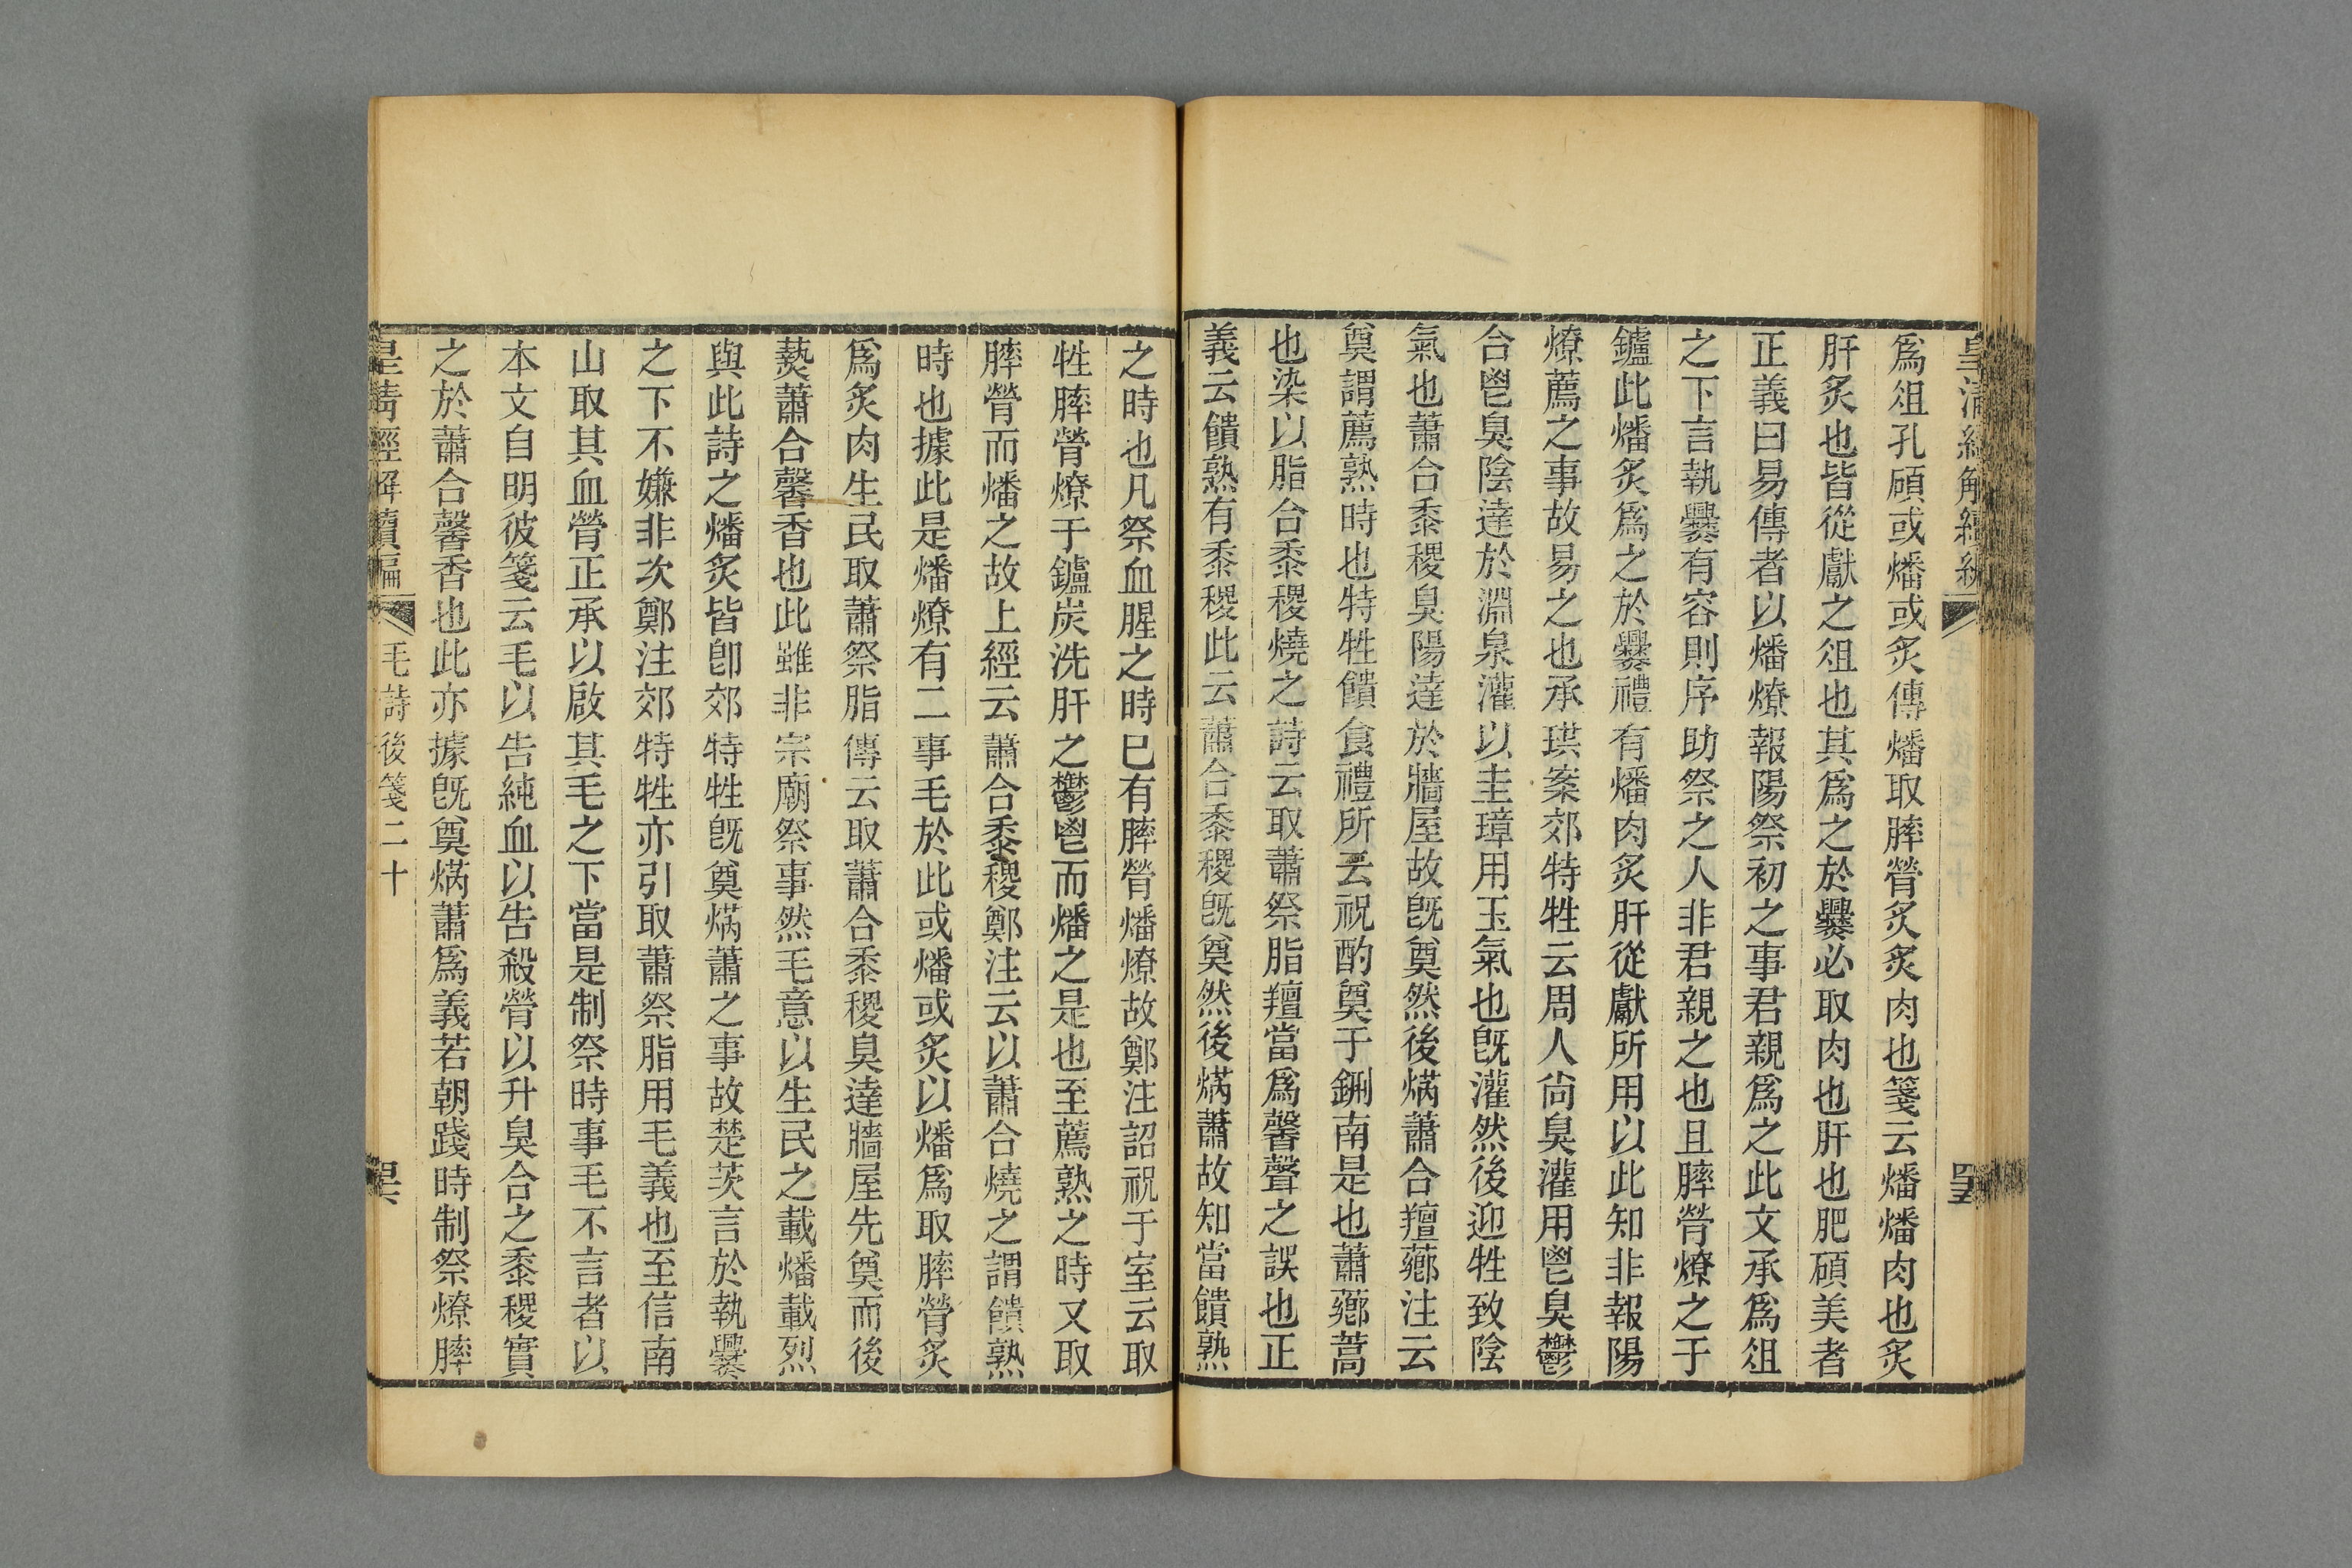 皇清經解續編
爲俎孔碩或燔或炙傳燔取膟膋炙炙肉也箋云燔燔肉也炙
肝炙也皆從獻之俎也其爲之於爨必取肉也肝也肥碩美者
正義曰易傳者以燔燎報陽祭初之事君親爲之此文承爲俎
之下言執爨有容則序助祭之人非君親之也且膟膋燎之于
鑪此燔炙爲之於爨禮有燔肉炙肝從獻所用以此知非報陽
燎薦之事故易之也承珙案郊特牲云周人尙臭灌用鬯臭鬱
合鬯臭陰達於淵泉灌以圭璋用玉氣也旣灌然後迎牲致陰
氣也蕭合黍稷臭陽達於牆屋故旣奠然後焫蕭合羶薌注云
奠謂薦熟時也特牲饋食禮所云祝酌奠于鉶南是也蕭薌蒿
也染以脂合黍稷燒之詩云取蕭祭脂羶當爲馨聲之誤也正
義云饋熟有黍稷此云蕭合黍稷旣奠然後焫蕭故知當饋熟
之時也凡祭血腥之時已有膟膋燔燎故鄭注詔祝于室云取
牲膟膋燎于鑪炭洗肝之鬱鬯而燔之是也至薦熟之時又取
膟膋而燔之故上經云蕭合黍稷鄭注云以蕭合燒之謂饋熟
時也據此是燔燎有二事毛於此或燔或炙以燔爲取膟膋炙
爲炙肉生民取蕭祭脂傳云取蕭合黍稷臭達牆屋先奠而後
爇蕭合馨香也此雖非宗廟祭事然毛意以生民之載燔載烈
與此詩之燔炙皆卽郊特牲旣奠焫蕭之事故楚茨言於執爨
之下不嫌非次鄭注郊特牲亦引取蕭祭脂用毛義也至信南
山取其血膋正承以啟其毛之下當是制祭時事毛不言者以
本文自明彼箋云毛以告純血以告殺膋以升臭合之黍稷實
之於蕭合馨香也此亦據旣奠焫蕭爲義若朝踐時制祭燎膟
皇清經解續編
毛詩後箋二十